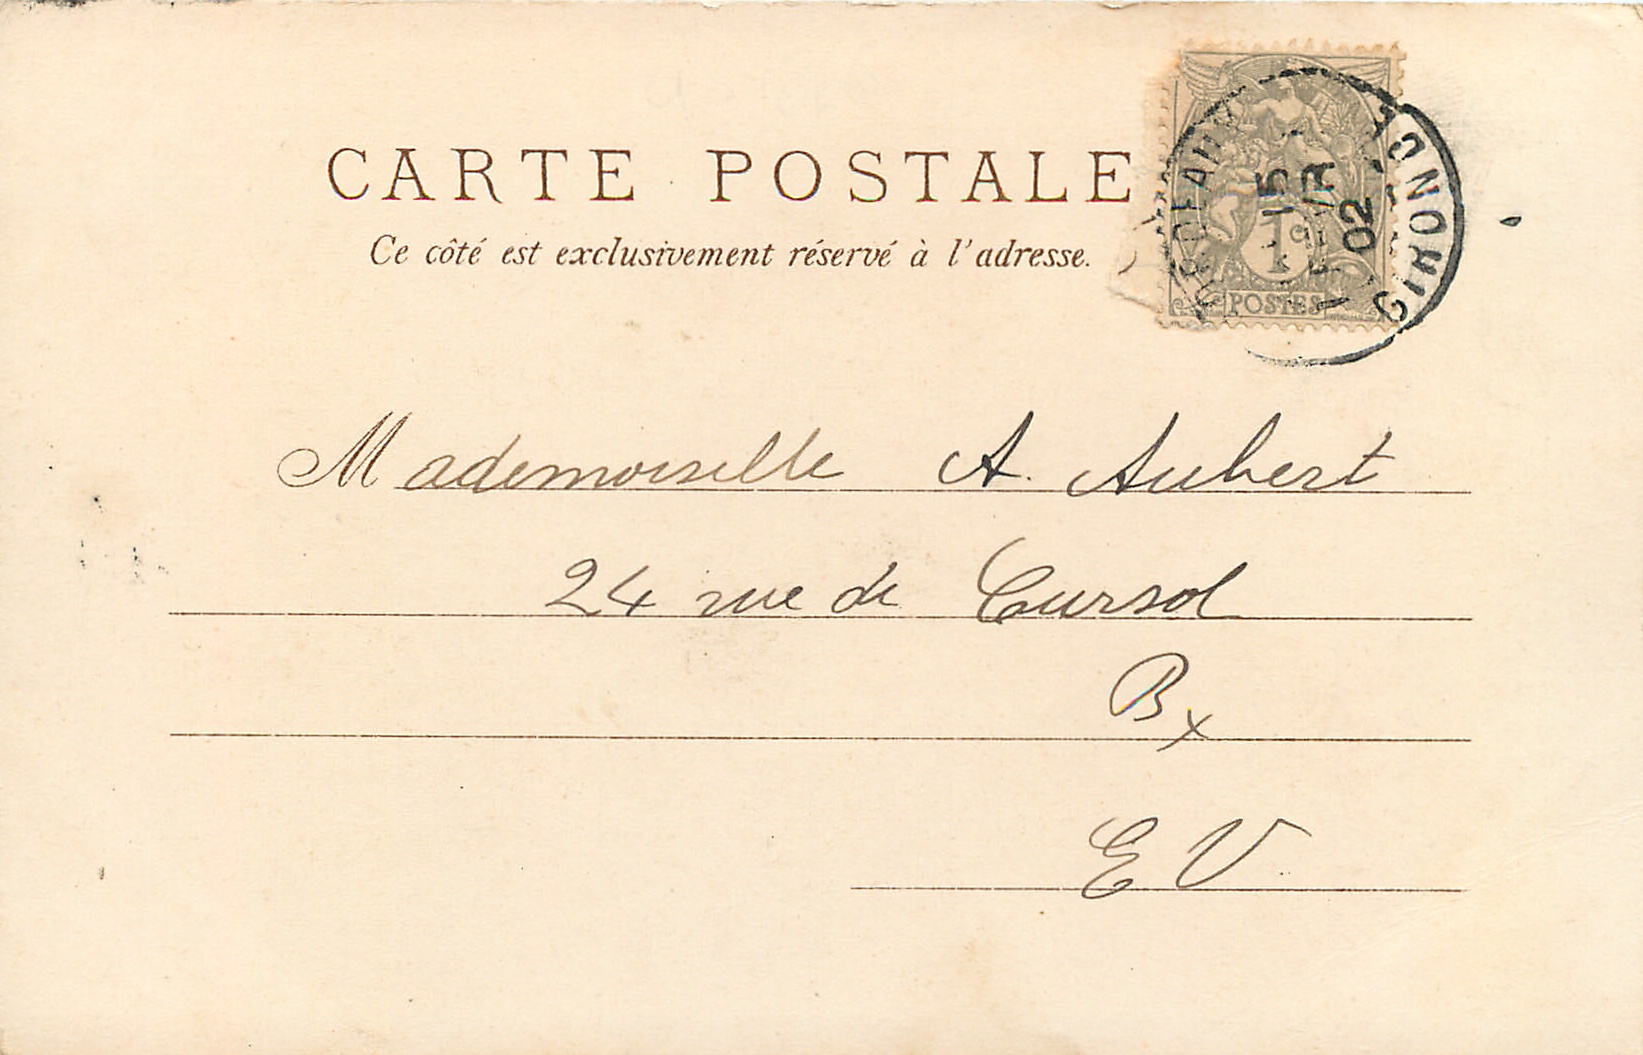 CARTE POSTALE
Ce côté est exclusivement réservé à l'adresse.
1c
POSTES
BORDEAUX
GIRONDE
15
02
Mademoiselle A. Aubert
24 rue de Cursol
Bx
EV